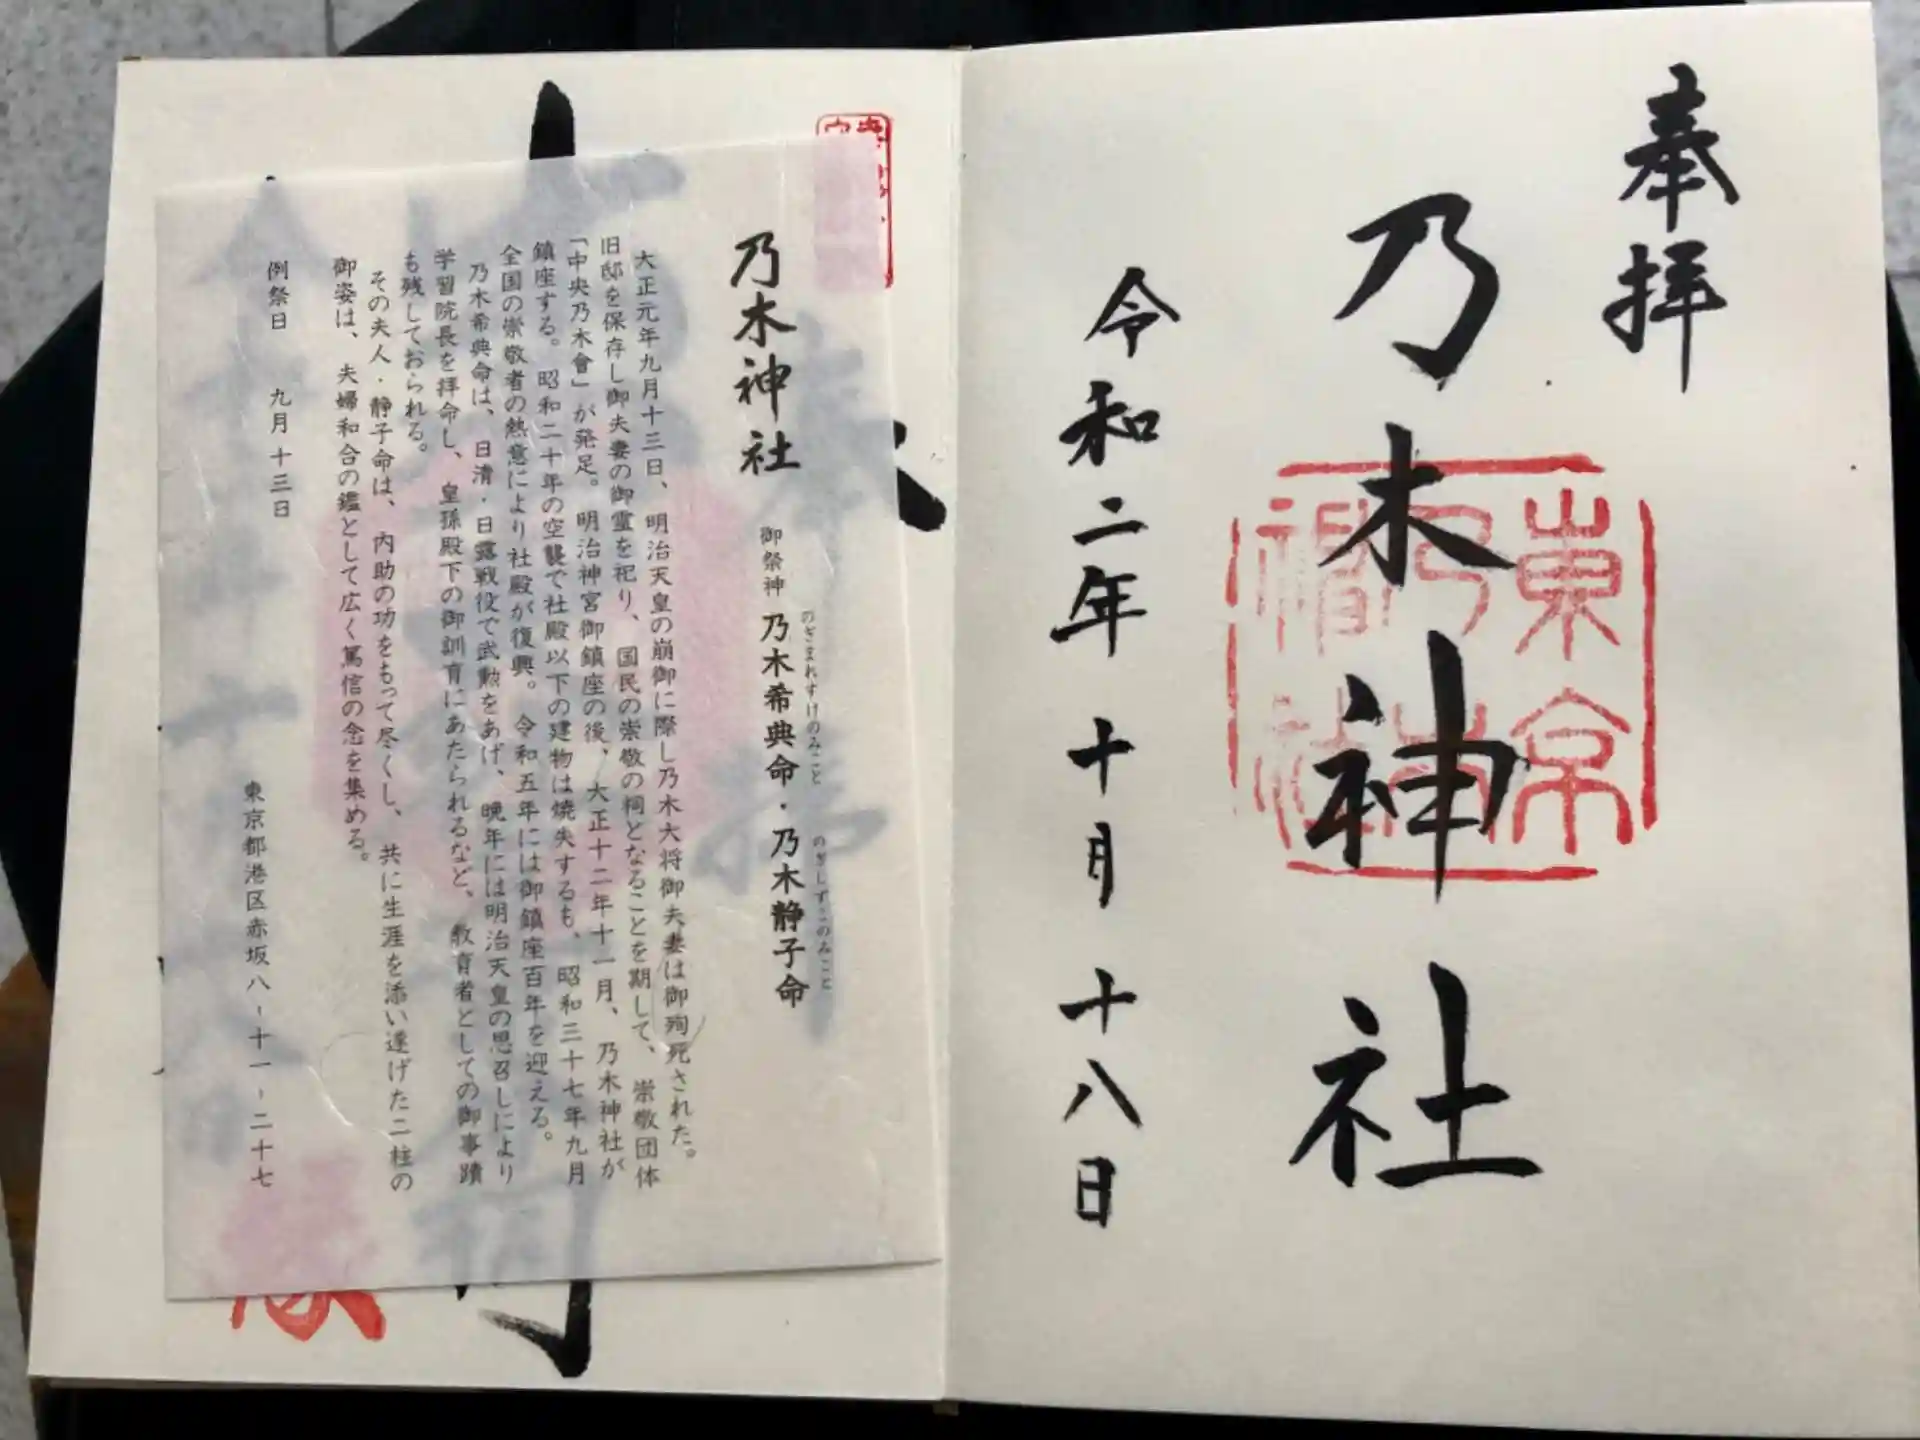 奉拝
乃木神社
東京
乃木
神社
令和二年 十月 十八日
乃木神社
御祭神 乃木希典命・乃木静子命
のぎまれすけのみこと
のぎしずこのみこと
大正元年九月十三日、明治天皇の崩御に際し乃木大将御夫妻は御殉死された。
旧邸を保存し御夫妻の御霊を祀り、国民の崇敬の祠となることを期して、崇敬団体
「中央乃木會」が発足。明治神宮御鎮座の後、大正十二年十一月、乃木神社が
鎮座する。昭和二十年の空襲で社殿以下の建物は焼失するも、昭和三十七年九月
全国の崇敬者の熱意により社殿が復興。令和五年には御鎮座百年を迎える。
乃木希典命は、日清・日露戦役で武勲をあげ、晩年には明治天皇の思召しにより
学習院長を拝命し、皇孫殿下の御訓育にあたられるなど、教育者としての御事蹟
も残しておられる。
その夫人・静子命は、内助の功をもって尽くし、共に生涯を添い遂げた二柱の
御姿は、夫婦和合の鑑として広く篤信の念を集める。
例祭日 九月十三日
東京都港区赤坂八-十一-二十七